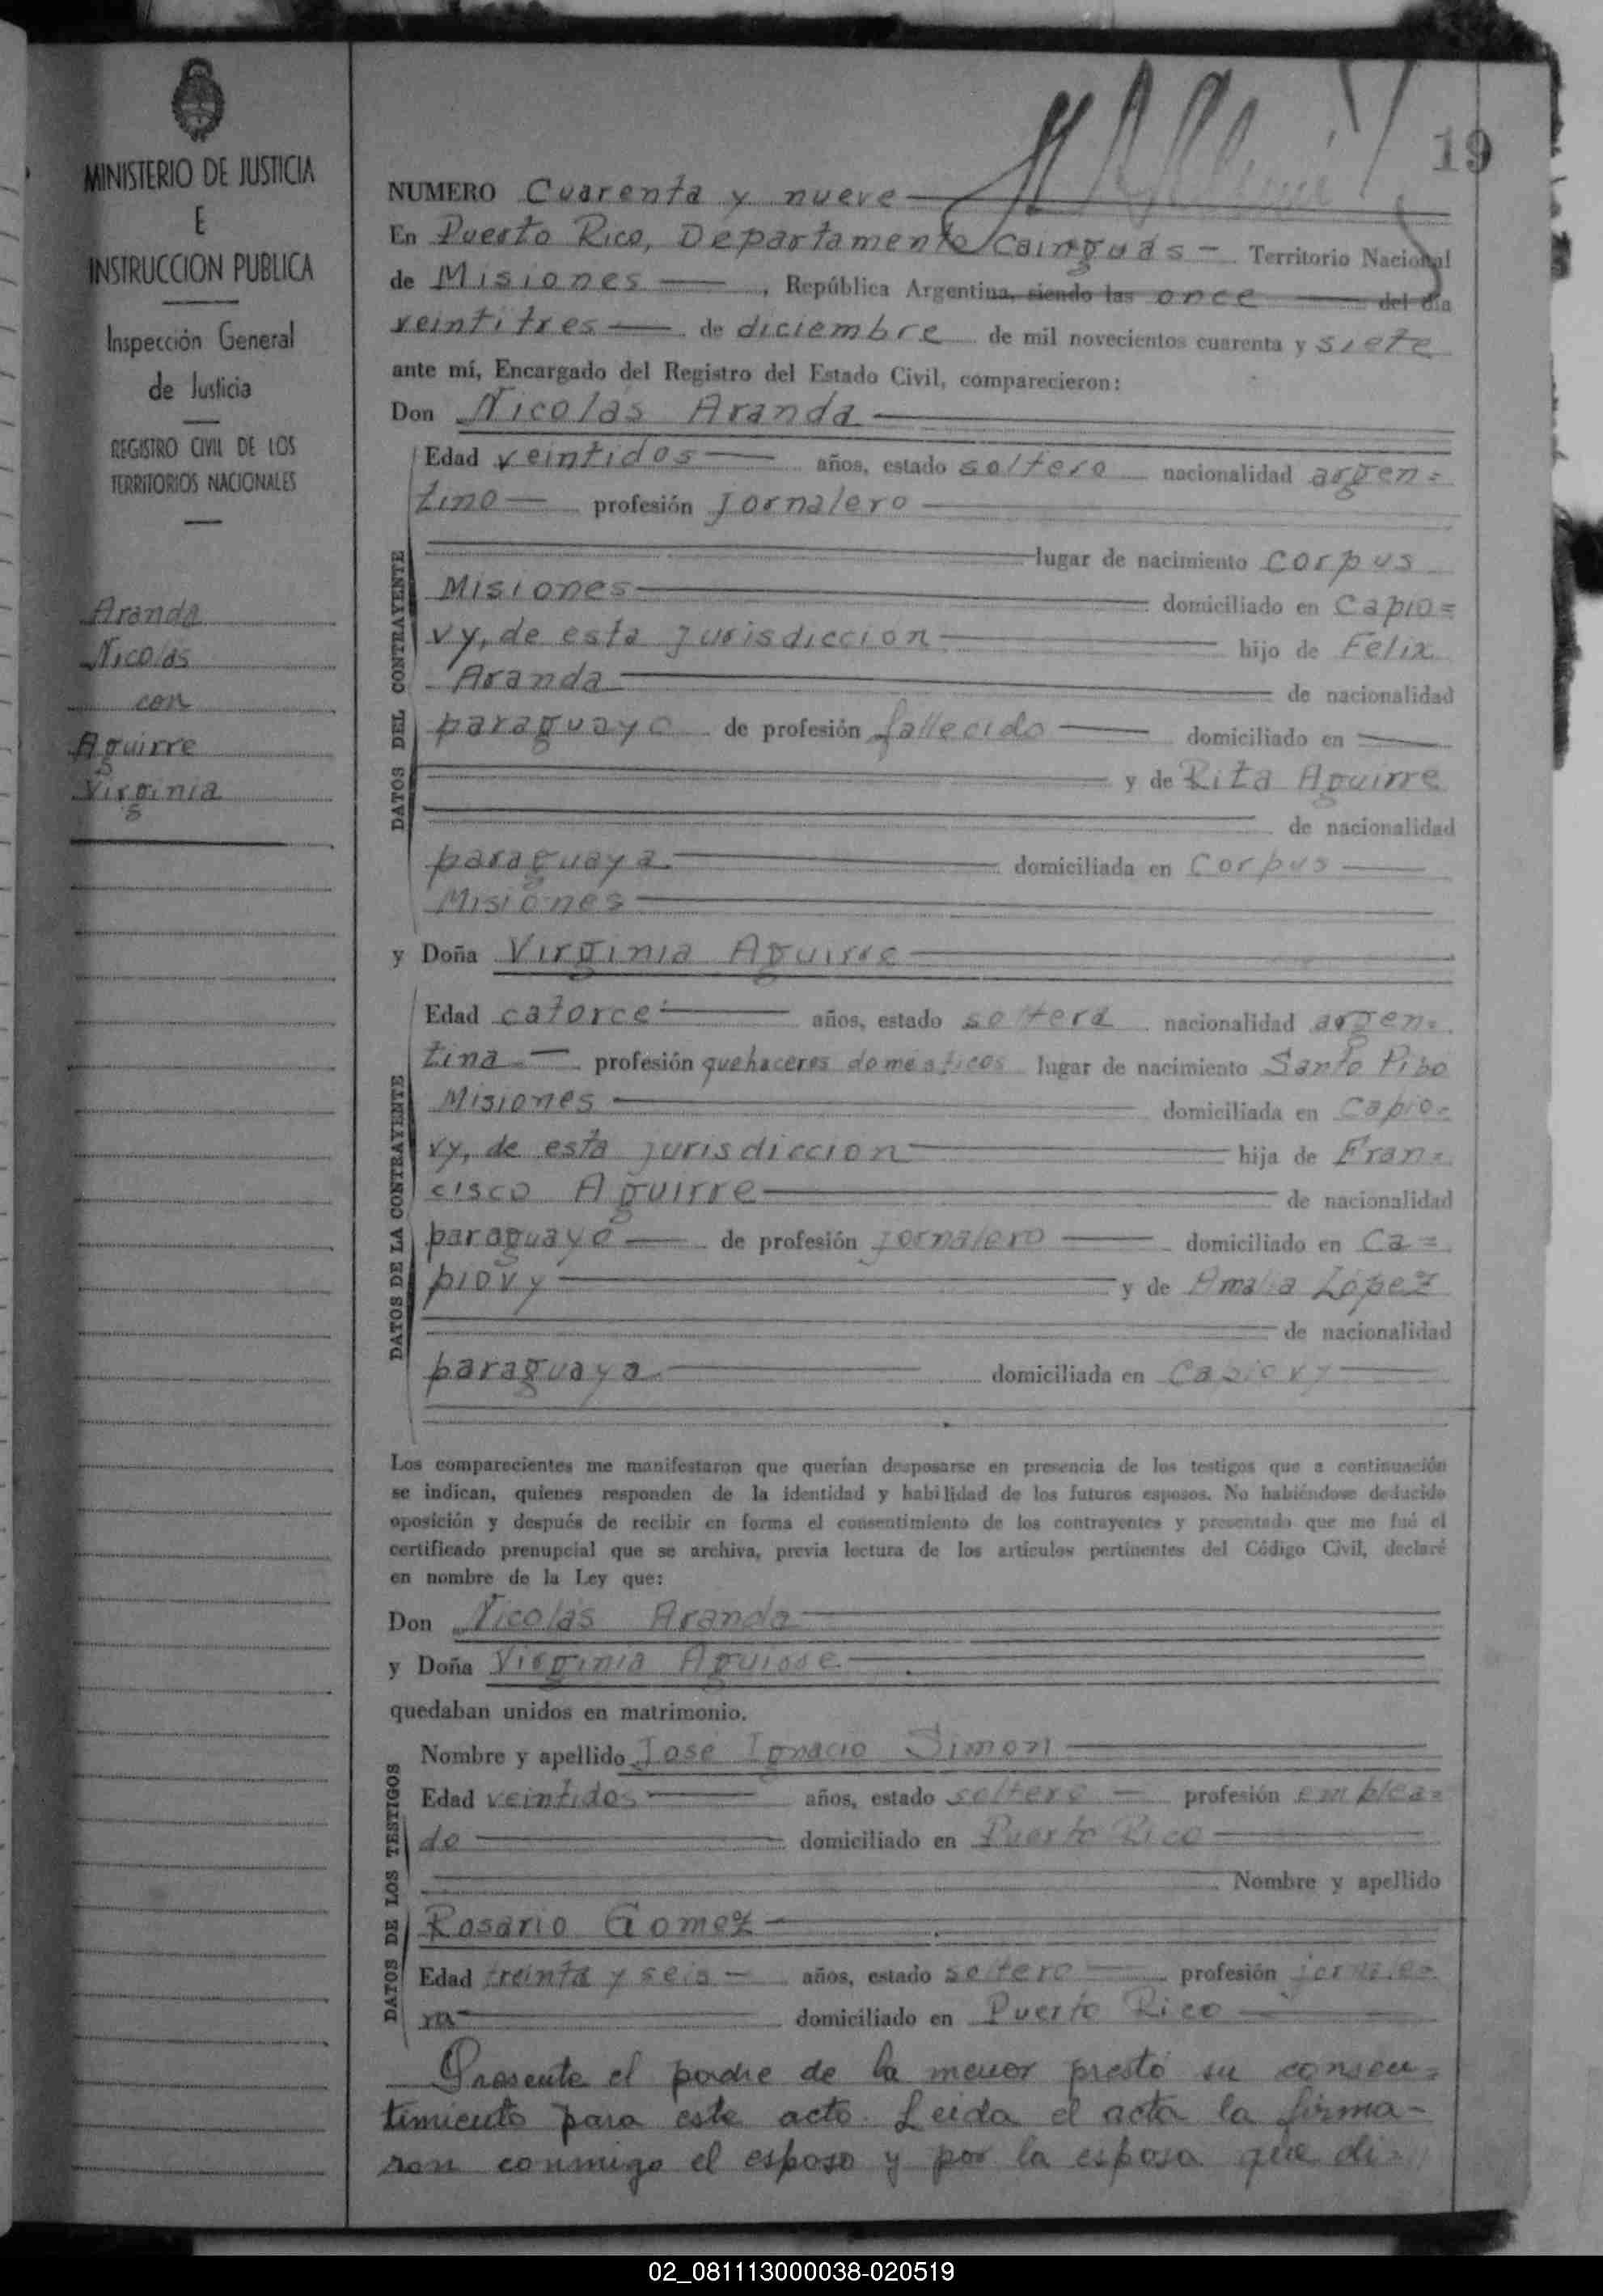 MINISTERIO DE JUSTICIA
E
INSTRUCCION PUBLICA
Inspección General
de Justicia
REGISTRO CIVIL DE LOS
TERRITORIOS NACIONALES
Aranda
Nicolás
con
Aguirre
Virginia
19
NUMERO Cuarenta y nueve
En Puerto Rico, Departamento Cainguás - Territorio Nacional
de Misiones, República Argentina, siendo las once del día
veintitres de diciembre de mil novecientos cuarenta y siete
ante mí, Encargado del Registro del Estado Civil, comparecieron:
Don Nicolás Aranda
DATOS DEL CONTRAYENTE
Edad veintidos años, estado soltero nacionalidad argen=
tino profesión jornalero
lugar de nacimiento Corpus
Misiones domiciliado en Capio=
vy, de esta jurisdicción hijo de Felix
Aranda de nacionalidad
paraguayo de profesión fallecido domiciliado en
y de Rita Aguirre
de nacionalidad
paraguaya domiciliada en Corpus
Misiones
y Doña Virginia Aguirre
DATOS DE LA CONTRAYENTE
Edad catorce años, estado soltera nacionalidad argen=
tina profesión quehaceres domésticos lugar de nacimiento Santo Pibo
Misiones domiciliada en Capio=
vy, de esta jurisdicción hija de Fran=
cisco Aguirre de nacionalidad
paraguayo de profesión jornalero domiciliado en Ca=
piovy y de Amalia López
de nacionalidad
paraguaya domiciliada en Capiovy
Los comparecientes me manifestaron que querían desposarse en presencia de los testigos que a continuación
se indican, quienes responden de la identidad y habilidad de los futuros esposos. No habiéndose deducido
oposición y después de recibir en forma el consentimiento de los contrayentes y presentado que me fué el
certificado prenupcial que se archiva, previa lectura de los artículos pertinentes del Código Civil, declaré
en nombre de la Ley que:
Don Nicolás Aranda
y Doña Virginia Aguirre
quedaban unidos en matrimonio.
DATOS DE LOS TESTIGOS
Nombre y apellido José Ignacio Simon
Edad veintidos años, estado soltero profesión emplea=
do domiciliado en Puerto Rico
Nombre y apellido
Rosario Gomez
Edad treinta y seis años, estado soltero profesión jornale=
ro domiciliado en Puerto Rico
Presente el padre de la menor prestó su consen=
timiento para este acto. Leida el acta la firma-
ron conmigo el esposo y por la esposa que di=
02_081113000038-020519